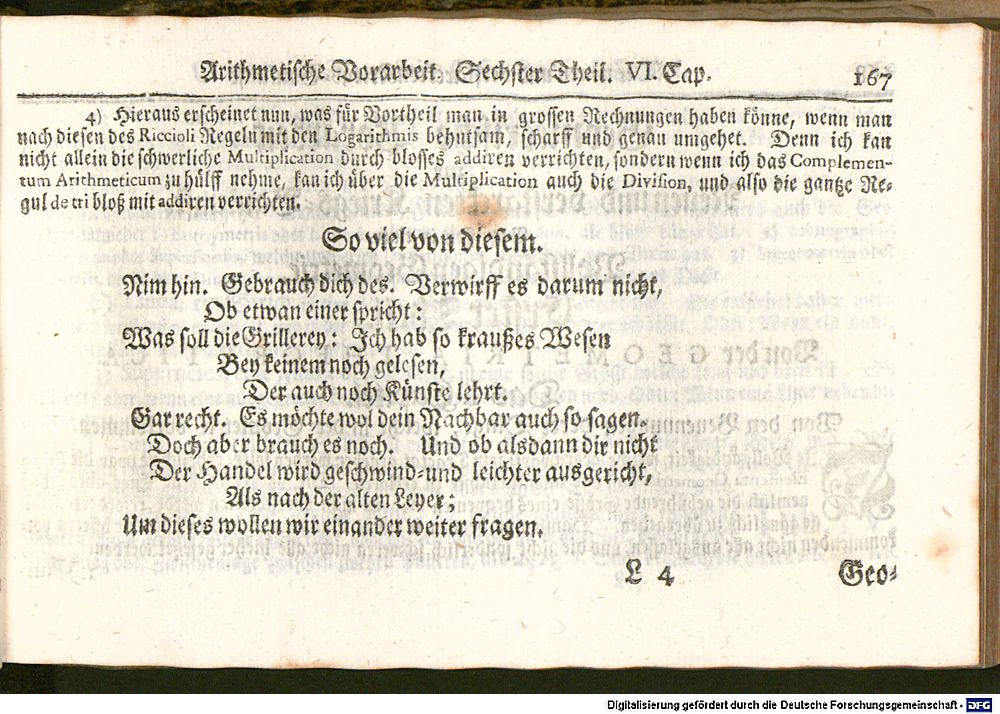 Arithmetische Vorarbeit. Sechster Theil. VI. Cap. 167
4) Hieraus erscheinet nun, was für Vortheil man in grossen Rechnungen haben könne, wenn man
nach diesen des Riccioli Regeln mit den Logarithmis behutsam, scharff und genau umgehet. Denn ich kan
nicht allein die schwerliche Multiplication durch blosses addiren verrichten, sondern wenn ich das Complemen-
tum Arithmeticum zu hülff nehme, kan ich über die Multiplication auch die Division, und also die gantze Re-
gul de tri bloß mit addiren verrichten.
So viel von diesem.
Nim hin. Gebrauch dich des. Verwirff es darum nicht,
Ob etwan einer spricht:
Was soll die Grillerey: Ich hab so kraußes Wesen
Bey keinem noch gelesen,
Der auch noch Künste lehrt.
Gar recht. Es möchte wol dein Nachbar auch so sagen.
Doch aber brauch es noch. Und ob alsdann dir nicht
Der Handel wird geschwind- und leichter ausgericht,
Als nach der alten Leyer;
Um dieses wollen wir einander weiter fragen.
L 4 Geo-
Digitalisierung gefördert durch die Deutsche Forschungsgemeinschaft - DFG